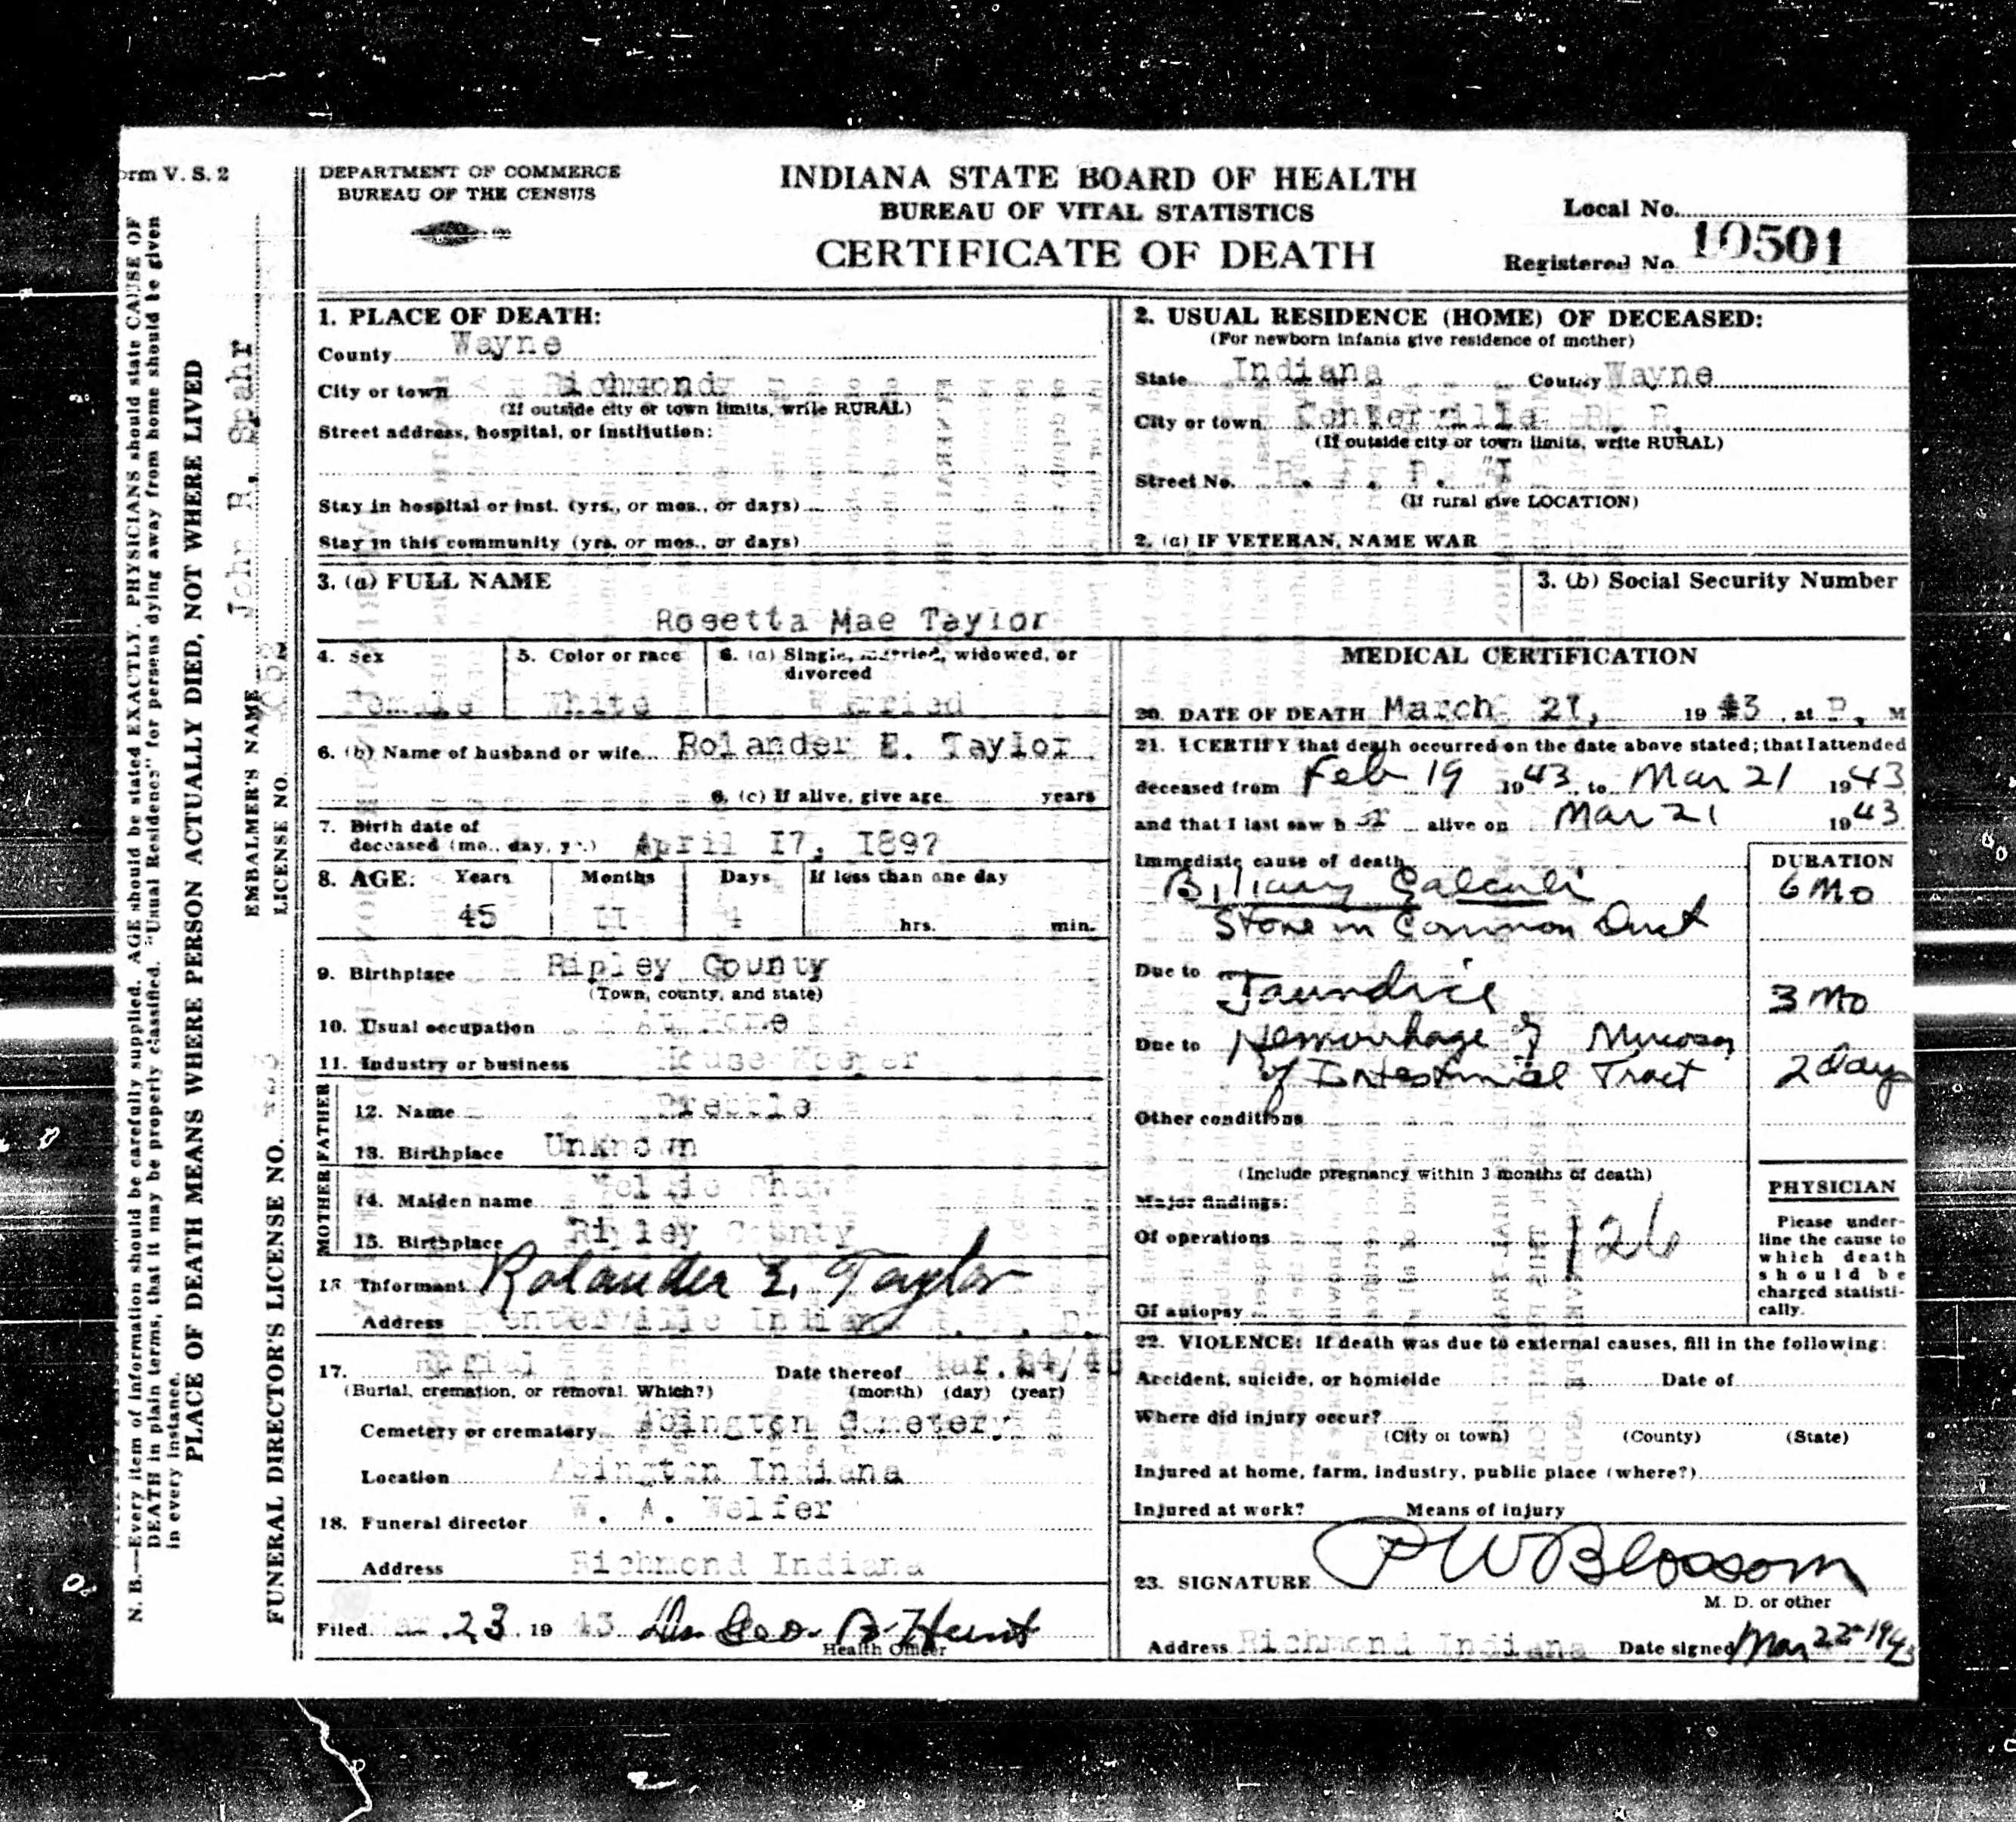 orm V. S. 2
DEPARTMENT OF COMMERCE
BUREAU OF THE CENSUS
INDIANA STATE BOARD OF HEALTH
BUREAU OF VITAL STATISTICS
CERTIFICATE OF DEATH
Local No.
Registered No. 10501
N. B.—Every item of information should be carefully supplied. AGE should be stated EXACTLY. PHYSICIANS should state CAUSE OF
DEATH in plain terms, that it may be properly classified. "Usual Residence" for persons dying away from home should be given
in every instance.
PLACE OF DEATH MEANS WHERE PERSON ACTUALLY DIED, NOT WHERE LIVED
EMBALMER'S NAME John R. Spahr
LICENSE NO.
FUNERAL DIRECTOR'S LICENSE NO.
1. PLACE OF DEATH:
County Wayne
City or town Richmond
(If outside city or town limits, write RURAL)
Street address, hospital, or institution:
Stay in hospital or inst. (yrs., or mos., or days)
Stay in this community (yrs. or mos., or days)
2. USUAL RESIDENCE (HOME) OF DECEASED:
(For newborn infants give residence of mother)
State Indiana County Wayne
City or town Centerville R. R.
(If outside city or town limits, write RURAL)
Street No.
(If rural give LOCATION)
2. (a) IF VETERAN, NAME WAR
3. (a) FULL NAME
Rosetta Mae Taylor
3. (b) Social Security Number
4. Sex
Female
5. Color or race
White
6. (a) Single, married, widowed, or
divorced
Married
6. (b) Name of husband or wife Rolander E. Taylor
6. (c) If alive, give age years
7. Birth date of
deceased (mo., day, yr.) April I7, I897
8. AGE: Years Months Days If less than one day
45 II 4 hrs. min.
9. Birthplace Ripley County
(Town, county, and state)
10. Usual occupation At Home
11. Industry or business House Keeper
FATHER
12. Name
13. Birthplace Unknown
MOTHER
14. Maiden name
15. Birthplace Ripley County
16 Informant Rolander E. Taylor
Address Centerville Indiana
17. Burial Date thereof Mar. 24/43
(Burial, cremation, or removal. Which?) (month) (day) (year)
Cemetery or crematory Abington Cemetery
Location Abington Indiana
18. Funeral director W. A. Welfer
Address Richmond Indiana
Filed Mar 23, 19 43 Dr. Geo. B Hunt
Health Officer
MEDICAL CERTIFICATION
20. DATE OF DEATH March 2I, 19 43, at P. M
21. I CERTIFY that death occurred on the date above stated; that I attended
deceased from Feb 19 1943, to Mar 21 1943
and that I last saw h er alive on Mar 21 1943
Immediate cause of death DURATION
Biliary Calculi 6 Mo
Stone in Common Duct
Due to Jaundice 3 Mo
Due to Hemorrhage of Mucosa
of Intestinial Tract 2 day
Other conditions
(Include pregnancy within 3 months of death)
Major findings:
Of operations
126
Of autopsy
PHYSICIAN
Please under-
line the cause to
which death
should be
charged statisti-
cally.
22. VIOLENCE: If death was due to external causes, fill in the following:
Accident, suicide, or homicide Date of
Where did injury occur?
(City or town) (County) (State)
Injured at home, farm, industry, public place (where?)
Injured at work? Means of injury
23. SIGNATURE P W Blossom
M. D. or other
Address Richmond Indiana Date signed Mar 22-1943